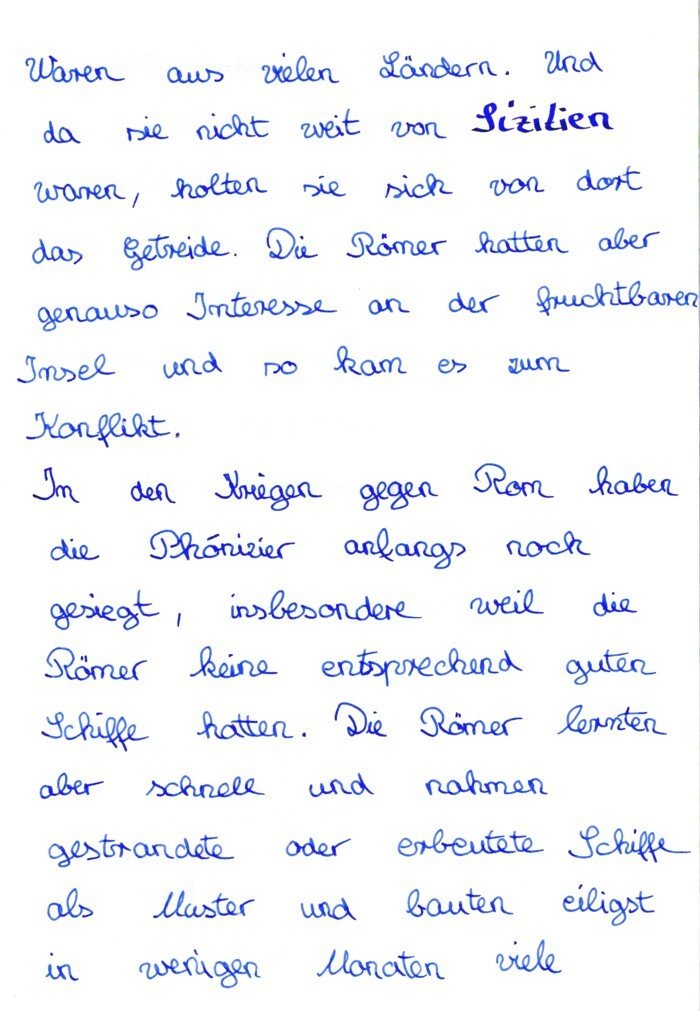 Waren aus vielen Ländern. Und
da sie nicht weit von Sizilien
waren, holten sie sich von dort
das Getreide. Die Römer hatten aber
genauso Interesse an der fruchtbaren
Insel und so kam es zum
Konflikt.
In den Kriegen gegen Rom haben
die Phönizier anfangs noch
gesiegt, insbesondere weil die
Römer keine entsprechend guten
Schiffe hatten. Die Römer lernten
aber schnell und nahmen
gestrandete oder erbeutete Schiffe
als Muster und bauten eiligst
in wenigen Monaten viele